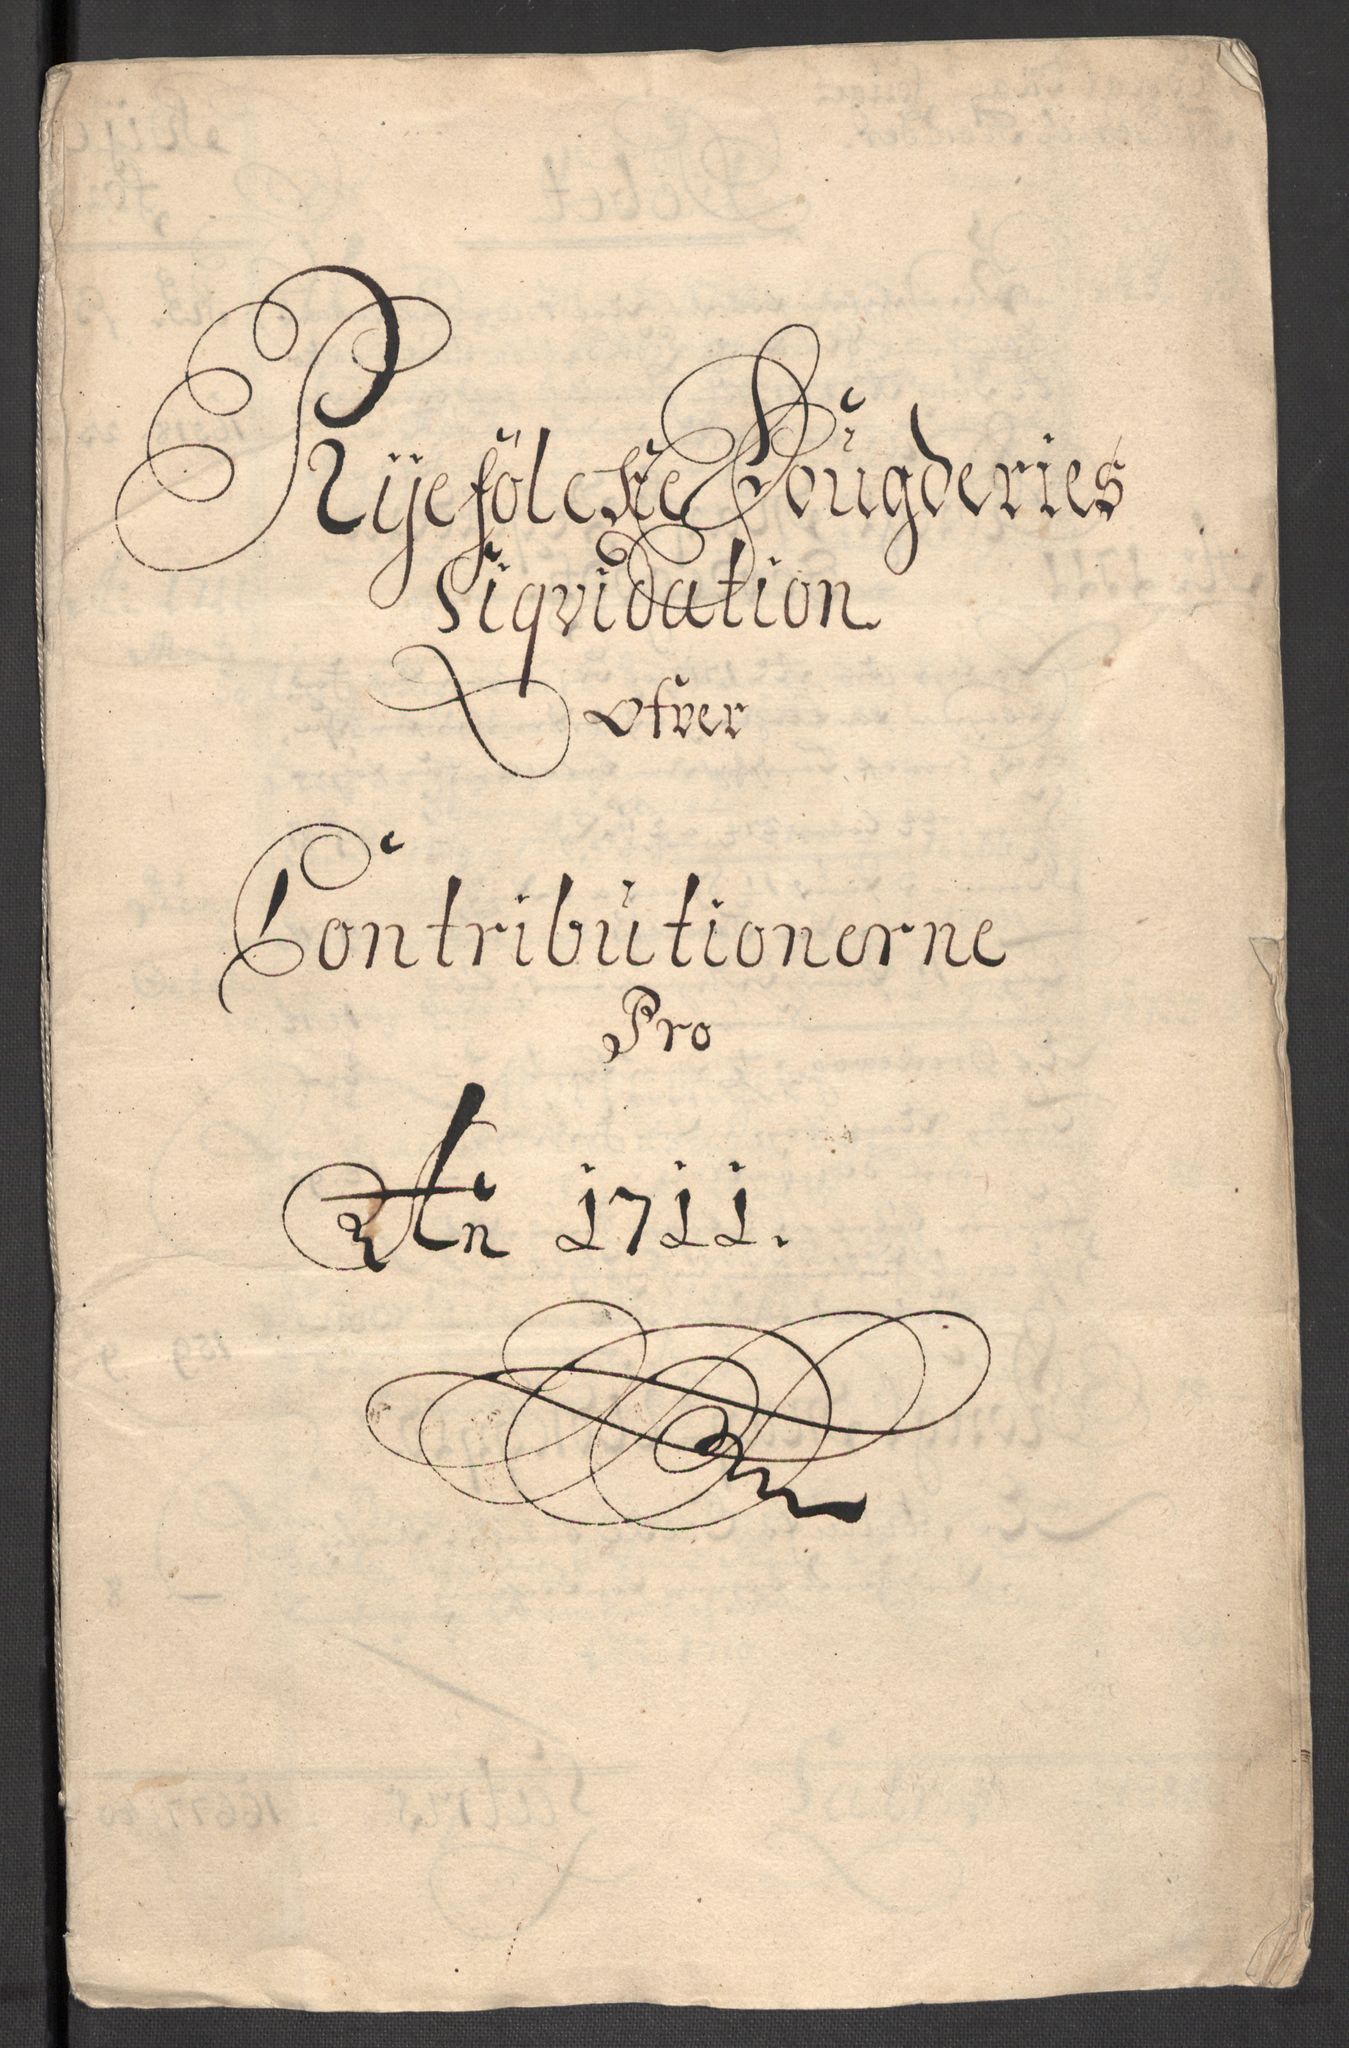 Ryefölcke Fougderies
Liqvidation
Ofver
Contributionerne
Pro
An̄ 1711.